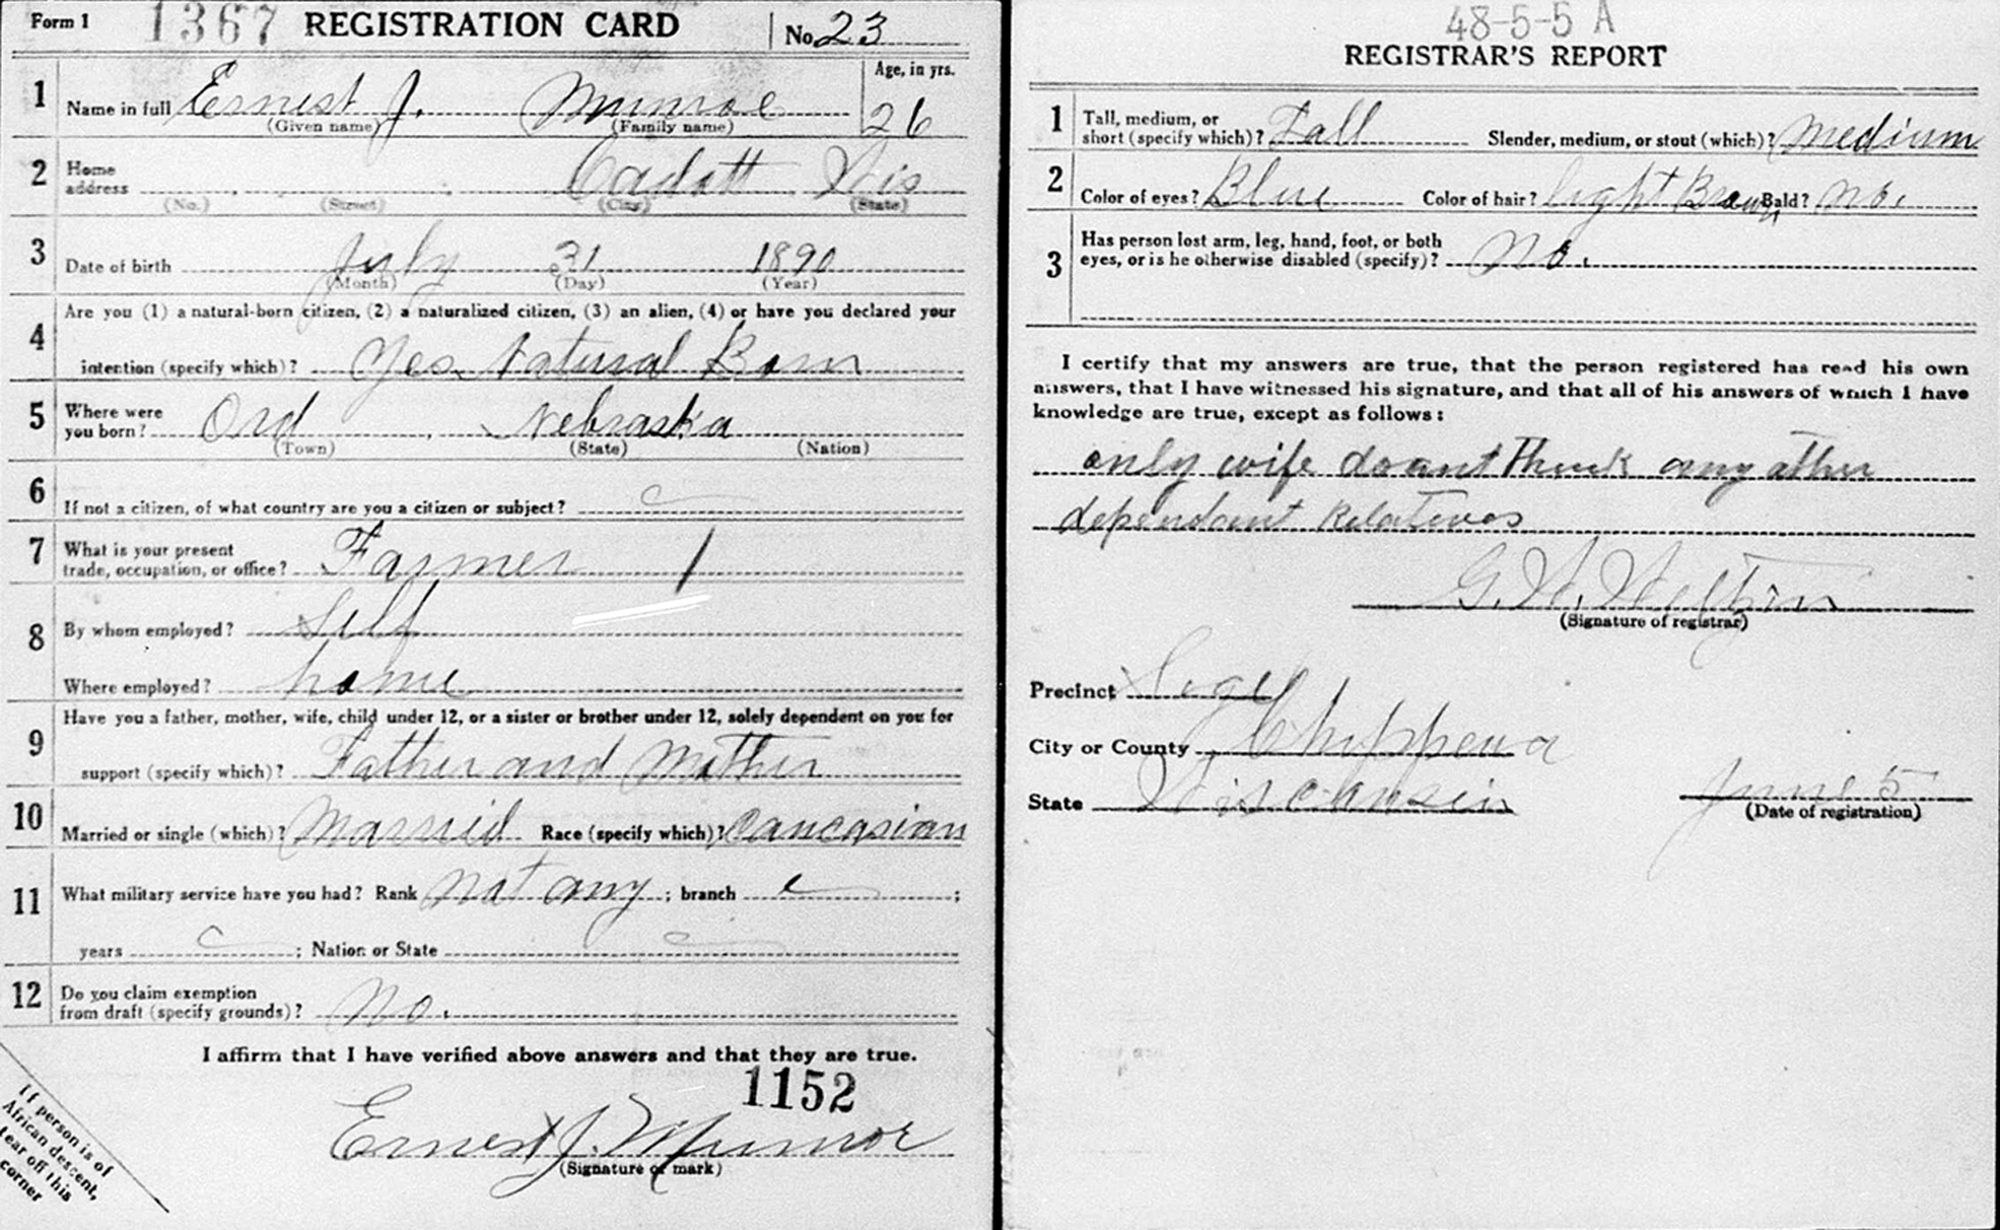 Form 1 1367 REGISTRATION CARD No. 23
Age, in yrs.
1 Name in full Ernest J. Munroe 26
(Given name) (Family name)
2 Home
address Cadott Wis
(No.) (Street) (City) (State)
3 Date of birth July 31 1890
(Month) (Day) (Year)
4 Are you (1) a natural-born citizen, (2) a naturalized citizen, (3) an alien, (4) or have you declared your
intention (specify which)? Yes Natural Born
5 Where were
you born? Ord Nebraska
(Town) (State) (Nation)
6 If not a citizen, of what country are you a citizen or subject?
7 What is your present
trade, occupation, or office? Farmer /
8 By whom employed? Self
Where employed? home
9 Have you a father, mother, wife, child under 12, or a sister or brother under 12, solely dependent on you for
support (specify which)? Father and Mother
10 Married or single (which)? Married Race (specify which)? Caucasian
11 What military service have you had? Rank not any ; branch ;
years ; Nation or State
12 Do you claim exemption
from draft (specify grounds)? No.
I affirm that I have verified above answers and that they are true.
1152
Ernest J. Munroe
(Signature or mark)
If person is of
African descent,
tear off this
corner
48-5-5 A
REGISTRAR'S REPORT
1 Tall, medium, or
short (specify which)? Tall Slender, medium, or stout (which)? Medium
2 Color of eyes? Blue Color of hair? light Brown Bald? No.
3 Has person lost arm, leg, hand, foot, or both
eyes, or is he otherwise disabled (specify)? No.
I certify that my answers are true, that the person registered has read his own
answers, that I have witnessed his signature, and that all of his answers of which I have
knowledge are true, except as follows:
only wife doant Think any other
dependant Relatives
G. W.
(Signature of registrar)
Precinct Sigel
City or County Chippewa
State Wisconsin June 5
(Date of registration)